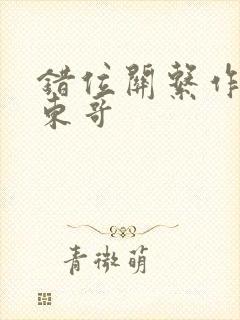 錯位關繫作
東哥
青微萌